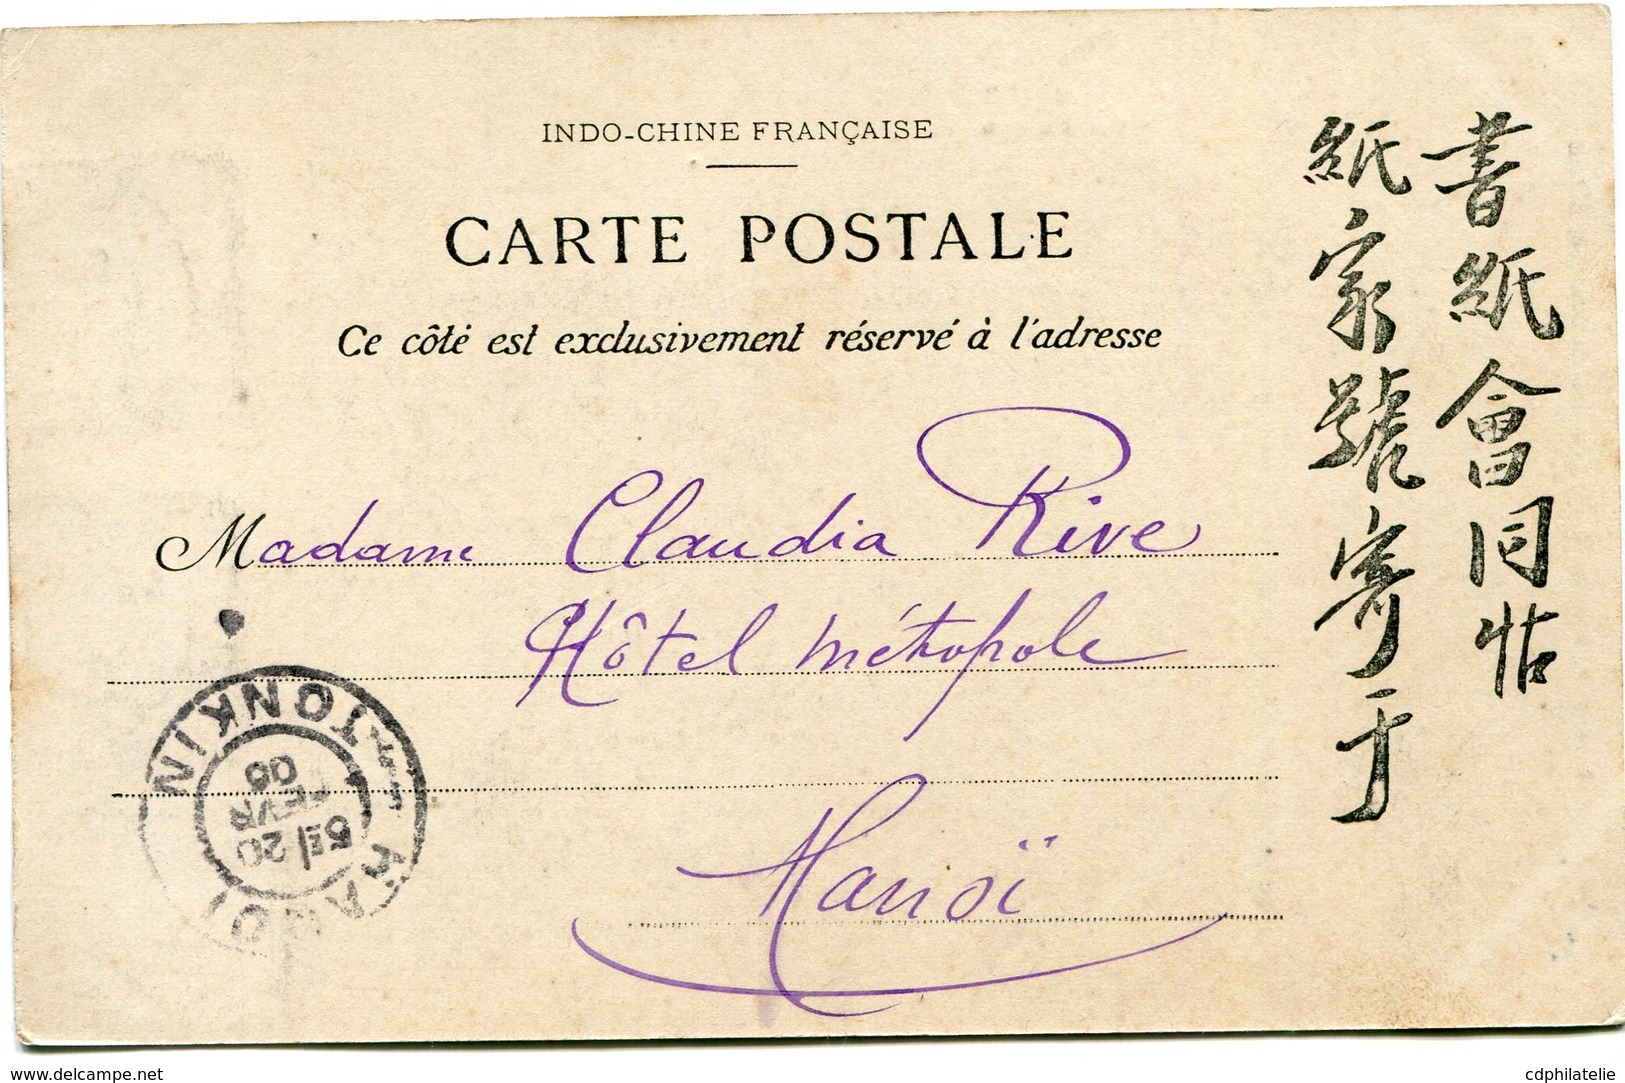 INDO-CHINE FRANÇAISE
CARTE POSTALE
Ce côté est exclusivement réservé à l'adresse
Madame Claudia Rive
Hôtel Métropole
Hanoï
書紙會同帖
紙家號寄于
HANOI
TONKIN
5E 20
FEVR
06
www.delcampe.net
cdphilatelie